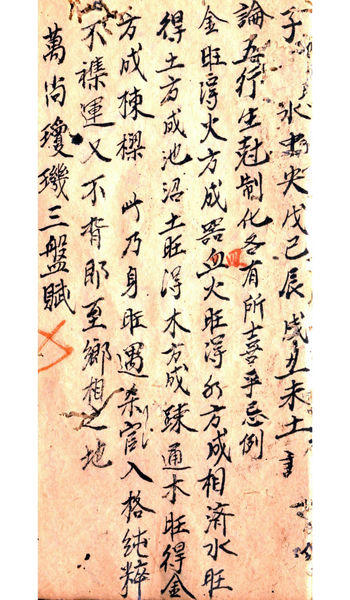 子 水 央戊己辰戌丑未土
論五行生尅制化各有所喜乎忌例
金旺淂火方成器血皿火旺淂水方成相濟水旺
得土方成池沼土旺淂木方成踈通木旺得金
方成棟樑 此乃身旺遇杀官入格純粹
不襍運又不背即至鄉相之地
萬尚瓊璣三盤賦